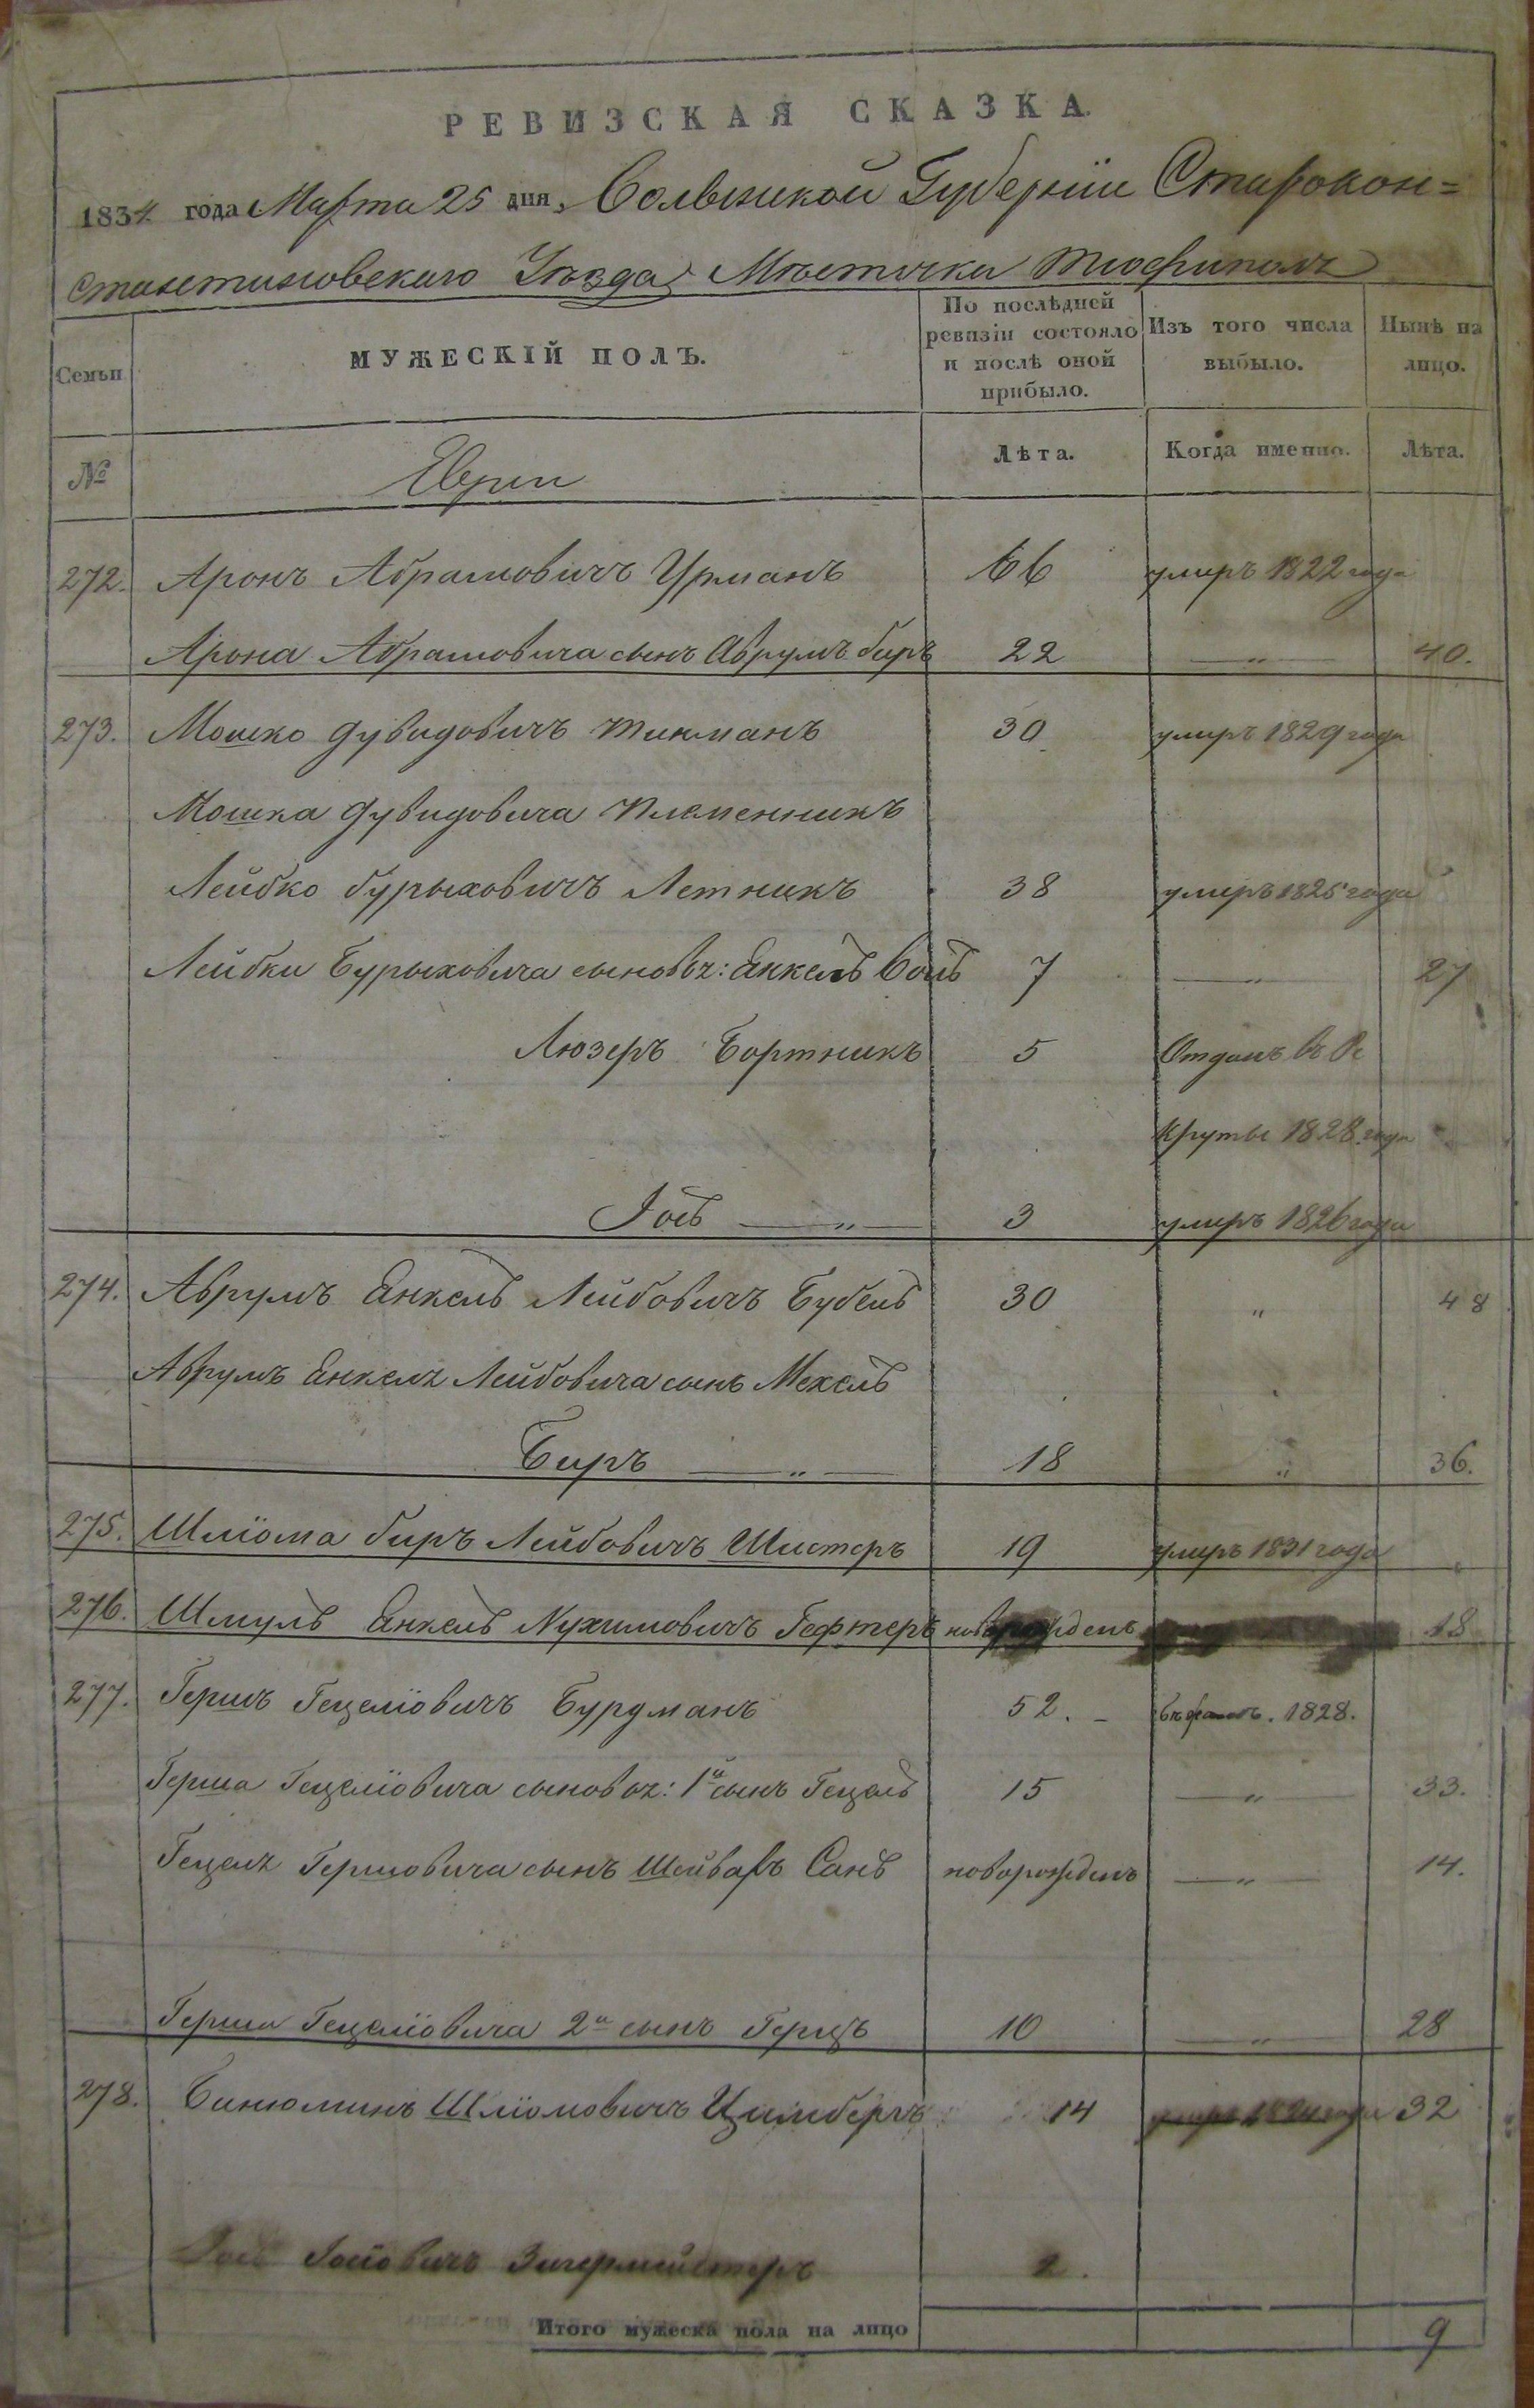 РЕВИЗСКАЯ СКАЗКА
1834 года Марта 25 дня, Волынской Губернiи Старокон=
стантиновскаго Уѣзда, Мѣстечка Тиофиполь
Семьи
МУЖЕСКIЙ ПОЛЪ.
По послѣдней ревизiи состояло и послѣ оной прибыло.
Изъ того числа выбыло.
Нынѣ на лицо.
№
Евреи
Лѣта.
Когда именно.
Лѣта.
272. Аронъ Абрамовичъ Урманъ 66 умиръ 1822 года
Арона Абрамовича сынъ Аврумъ биръ 22 — " — 40.
273. Мошко Дувидовичъ Тикманъ 30 умиръ 1829 года
Мошка Дувидовича племенникъ
Лейбко бурыховичъ Летникъ 38 умиръ 1825 года
Лейбки Бурыховича сыновья: Янкель Волъ 7 — " — 27
Люзеръ Бортникъ 5 Отданъ въ Ре
круты 1828 года
Iось — " — 3 умиръ 1826 года
274. Аврумъ Янкель Лейбовичъ Бубель 30 " 48
Аврумъ Янкеля Лейбовича сынъ Мехель
Биръ — " — 18 " 36.
275. Шлiома биръ Лейбовичъ Шистеръ 19 умиръ 1831 года
276. Шмуль Янкель Нухимовичъ Гефтеръ новорожденъ 18
277. Гершъ Гецелiовичъ Бурдманъ 52. – 1828.
Герша Гецелiовича сыновья: 1й сынъ Гецель 15 — " — 33.
Гецеля Гершовича сынъ Шейвахъ Сань новорожденъ — " — 14.
Герша Гецелiовича 2й сынъ Герцъ 10 — " — 28
278. Бинюминъ Шлiомовичъ Цимбергъ 14 умиръ 1824 года 32
2.
Итого мужеска пола на лицо 9